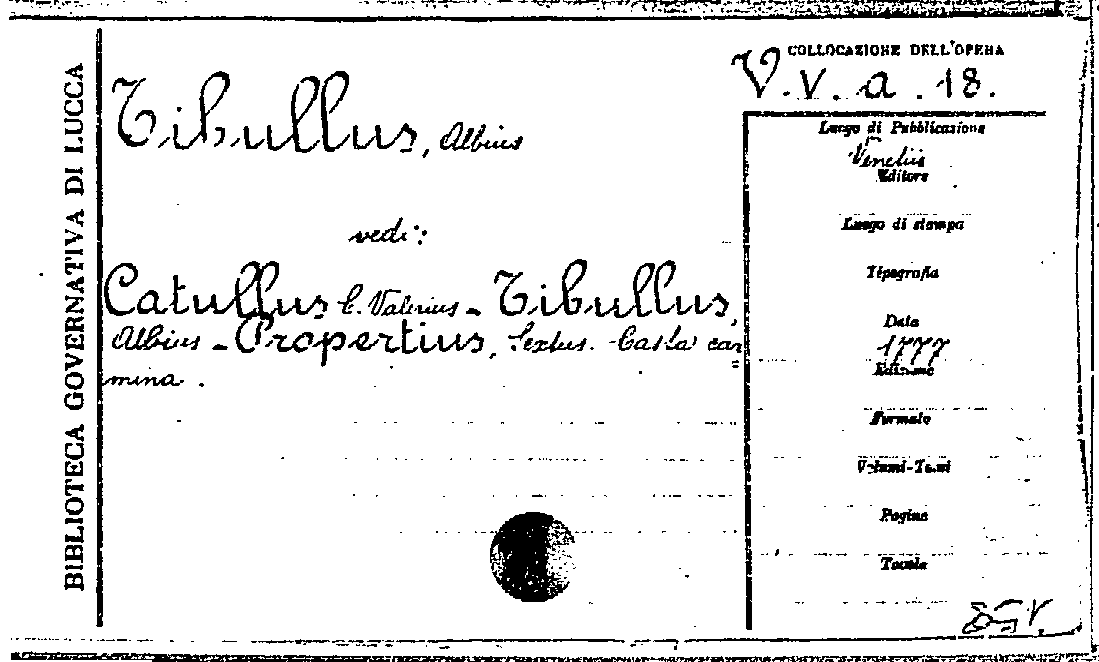 BIBLIOTECA GOVERNATIVA DI LUCCA
Tibullus, Albius
vedi:
Catullus C. Valerius - Tibullus,
Albius - Propertius, Sextus. Casta car=
mina.
COLLOCAZIONE DELL'OPERA
V.V.a.18.
Luogo di Pubblicazione
Venetiis
Editore
Luogo di stampa
Tipografia
Data
1777
Edizione
Formato
Volumi-Tomi
Pagine
Tavole